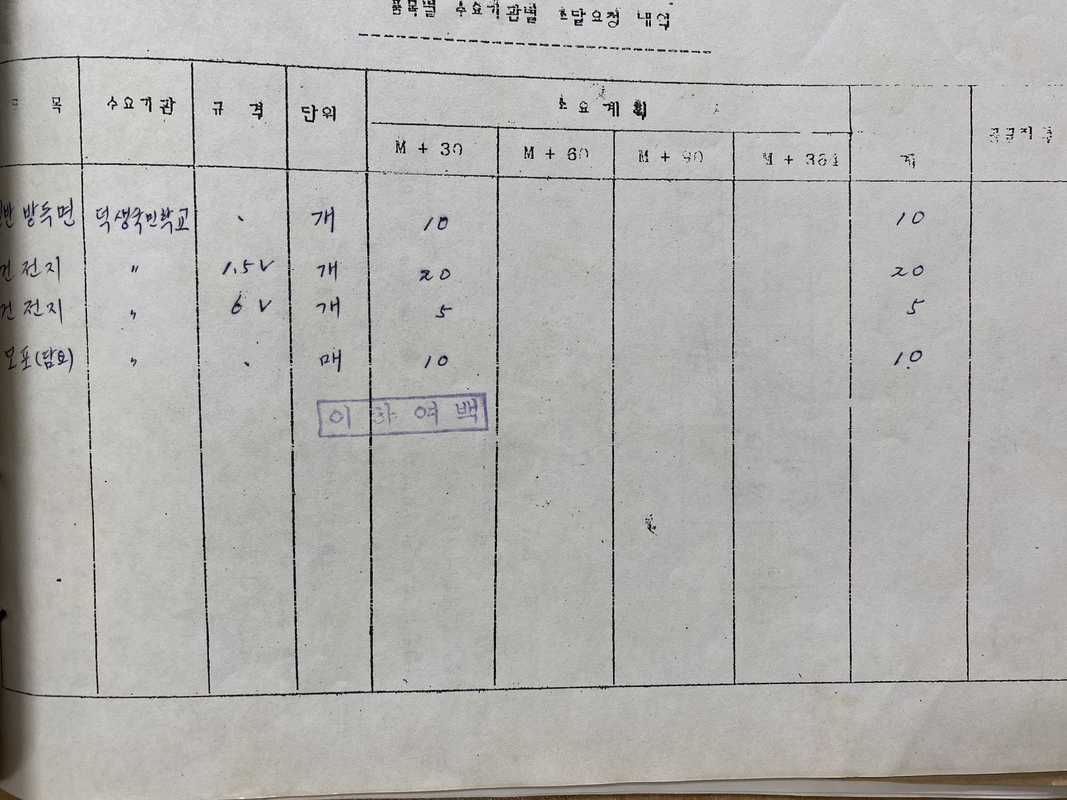 품목별 수요기관별 조달요청 내역
목 수요기관 규 격 단위 소 요 계 획 계
M + 30 M + 60 M + 90 M + 364
방독면 덕생국민학교 . 개 10 10
건전지 " 1.5V 개 20 20
건전지 " 6V 개 5 5
모포(담요) " . 매 10 10
이 하 여 백